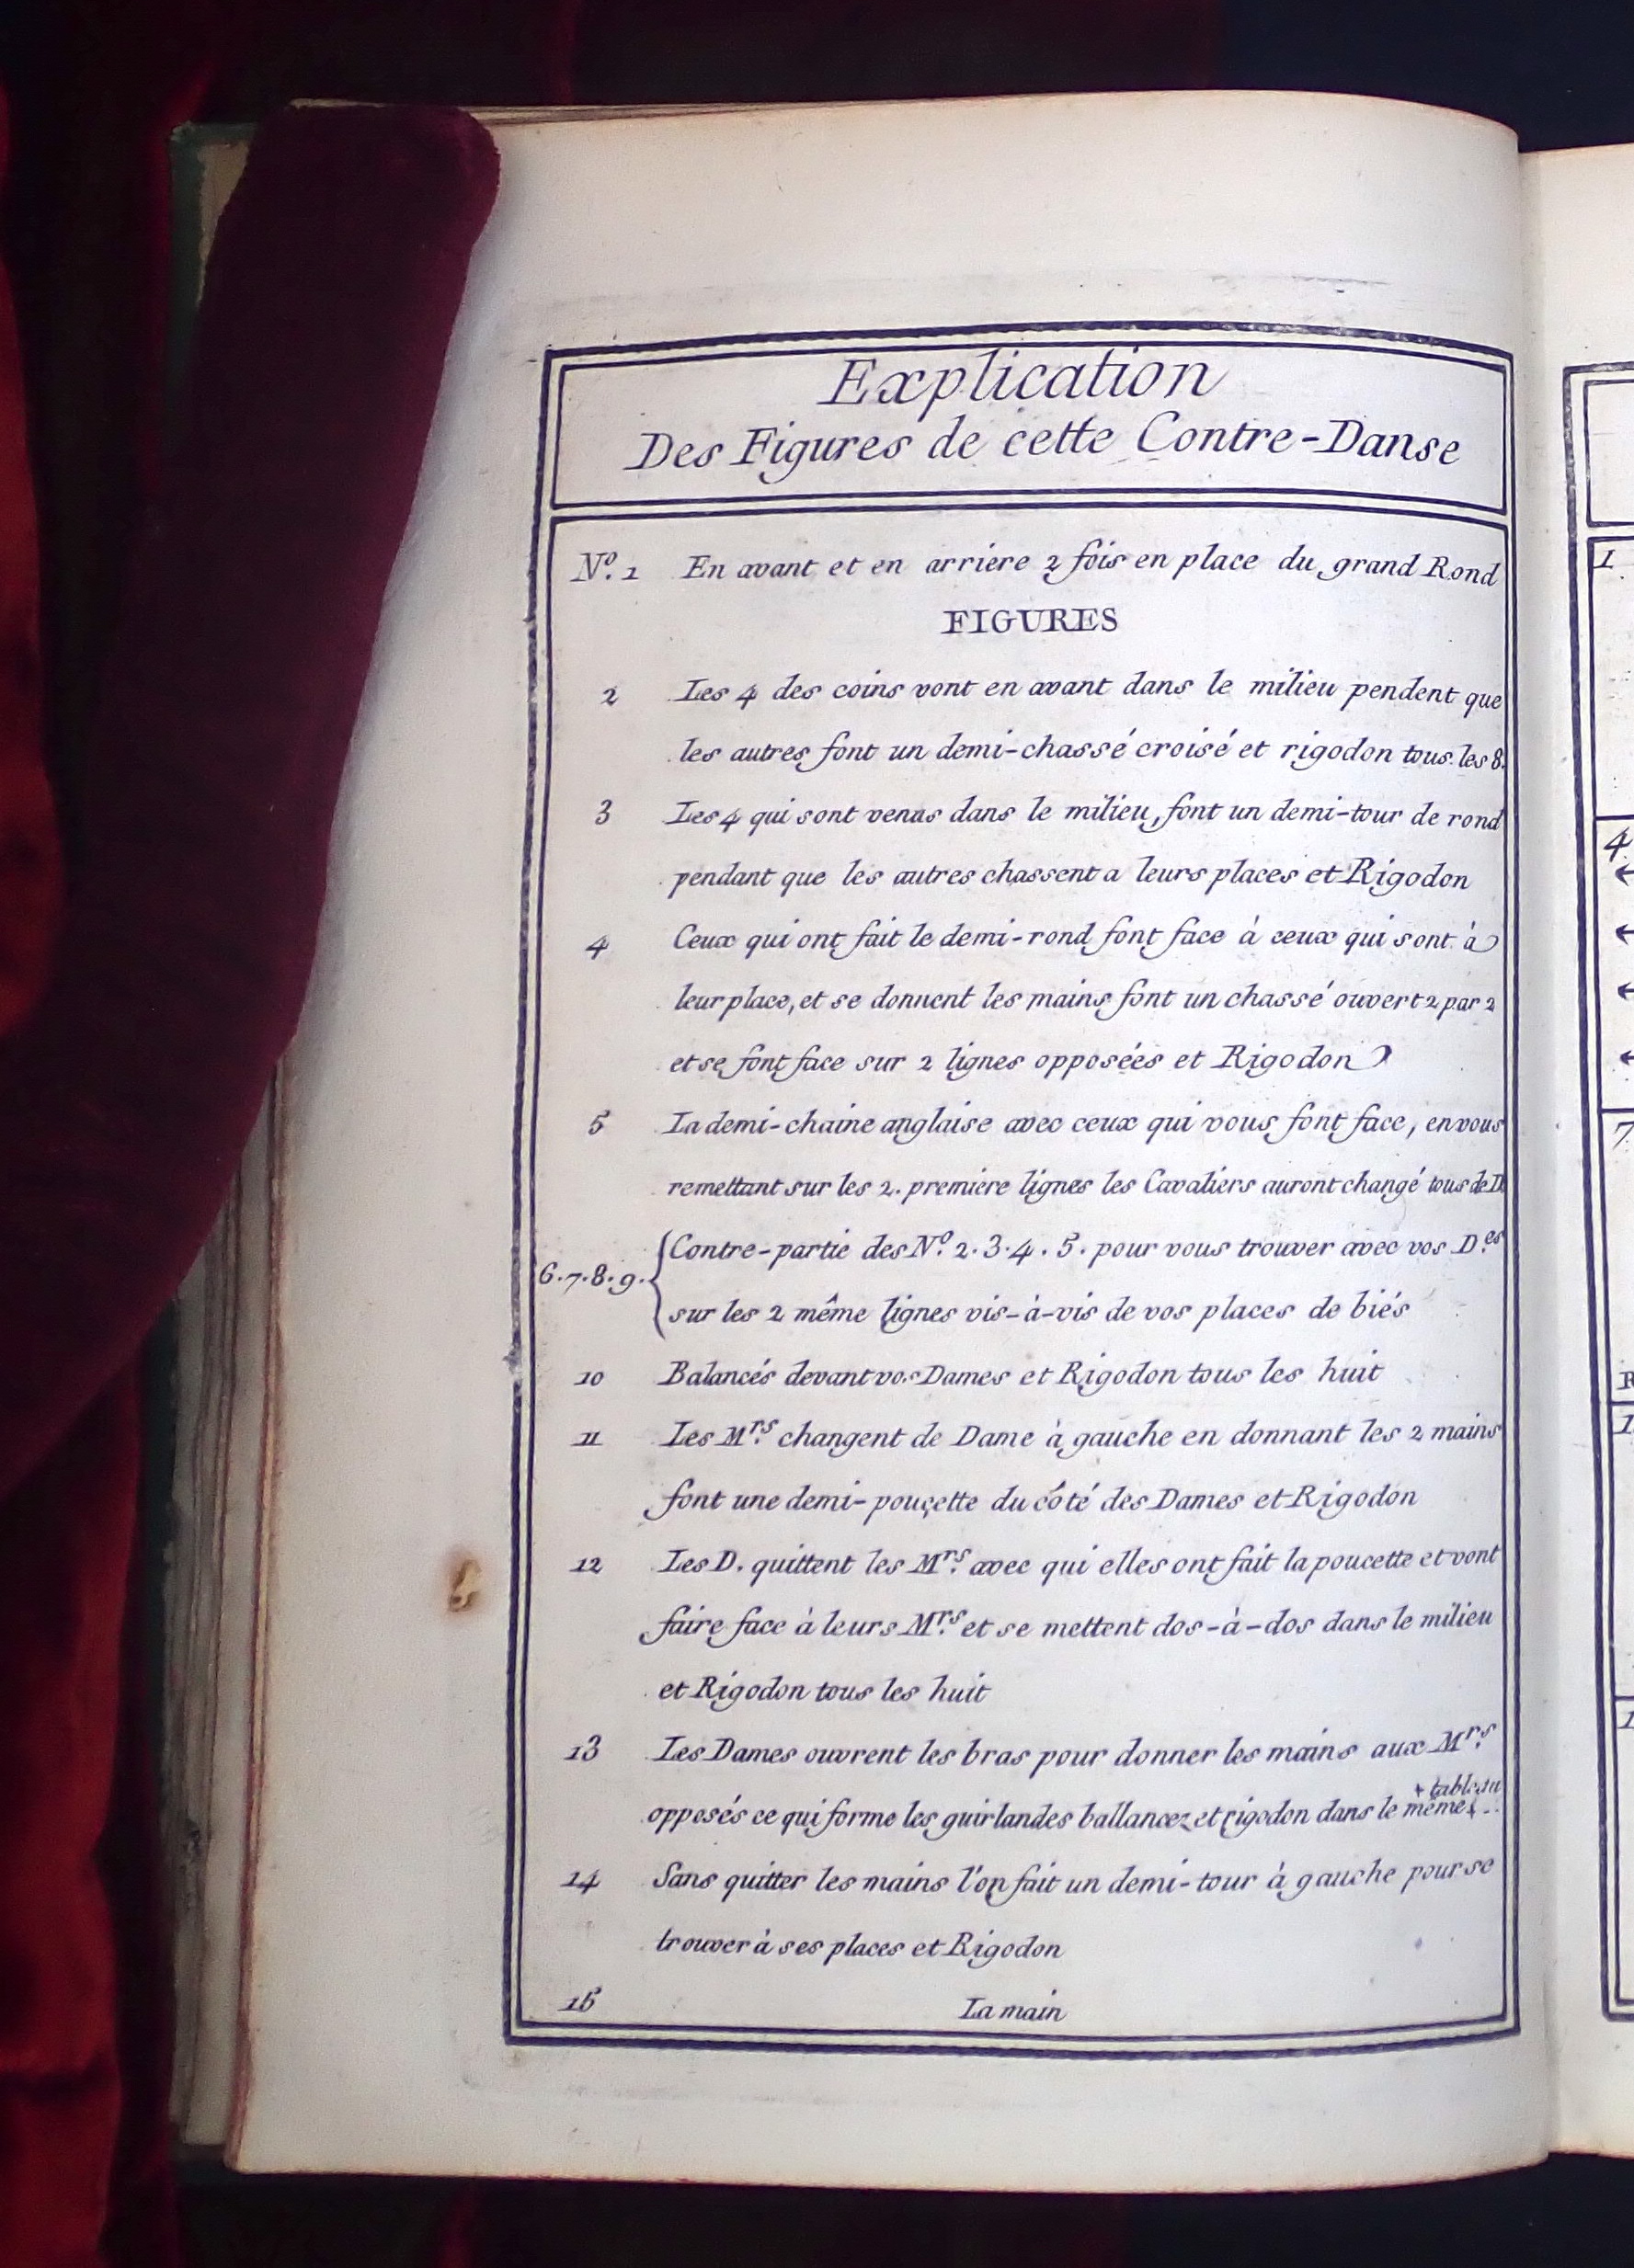 Explication
Des Figures de cette Contre-Danse
Nº. 1 En avant et en arriere 2 fois en place du grand Rond
FIGURES
2 Les 4 des coins vont en avant dans le milieu pendent que
les autres font un demi-chassé croisé et rigodon tous les 8.
3 Les 4 qui sont venus dans le milieu, font un demi-tour de rond
pendant que les autres chassent a leurs places et Rigodon
4 Ceux qui ont fait le demi-rond font face à ceux qui sont à
leur place, et se donnent les mains font un chassé ouvert 2 par 2
et se font face sur 2 lignes opposées et Rigodon
5 La demi-chaine anglaise avec ceux qui vous font face, en vous
remettant sur les 2. premiere lignes les Cavaliers auront changé tous de D.
6.7.8.9. Contre-partie des Nº. 2.3.4.5. pour vous trouver avec vos D.es
sur les 2 même lignes vis-à-vis de vos places de biés
10 Balancés devant vos Dames et Rigodon tous les huit
11 Les Mrs. changent de Dame à gauche en donnant les 2 mains
font une demi-pouçette du côté des Dames et Rigodon
12 Les D. quittent les Mrs. avec qui elles ont fait la poucette et vont
faire face à leurs Mrs. et se mettent dos-à-dos dans le milieu
et Rigodon tous les huit
13 Les Dames ouvrent les bras pour donner les mains aux Mrs.
+ tableau
opposés ce qui forme les guirlandes ballancez et rigodon dans le même +
14 Sans quitter les mains l'on fait un demi-tour à gauche pour se
trouver à ses places et Rigodon
15 La main
1
4
7